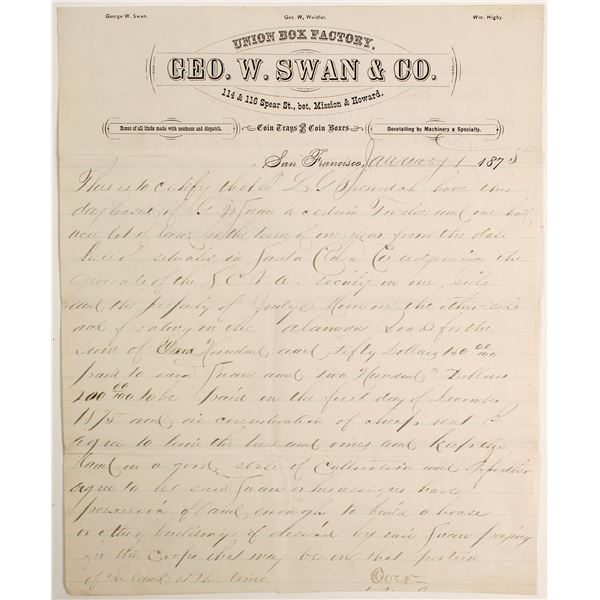 George W. Swan. Geo. W. Weidler. Wm. Higby.
UNION BOX FACTORY.
GEO. W. SWAN & CO.
114 & 116 Spear St., bet. Mission & Howard.
Boxes of all kinds made with neatness and dispatch. Coin Trays and Coin Boxes Dovetailing by Machinery a Specialty.
San Francisco, January 1 1875
This is to certify that I L G have this
day leased of G W Swan a certain Twelve and one half
acre lot of land for the term of one year from the date
hereof, situate in Santa Clara Co adjoining the
grounds of the S C V A Society on one side
and the property of Judge on the other side
and fronting on the Alameda Road for the
sum of One Hundred and fifty Dollars 150 00/100
paid to said Swan and two Hundred Dollars
200 00/100 to be paid on the first day of December
1875 and in consideration of cheap rent I
agree to the trees and vines and keep the
land in a good state of cultivation and I further
agree to let said Swan or his assigns have
possession of land enough to build a house
or other buildings if desired by said Swan paying
for the crops that may be on that portion
of the land at the time.
Over